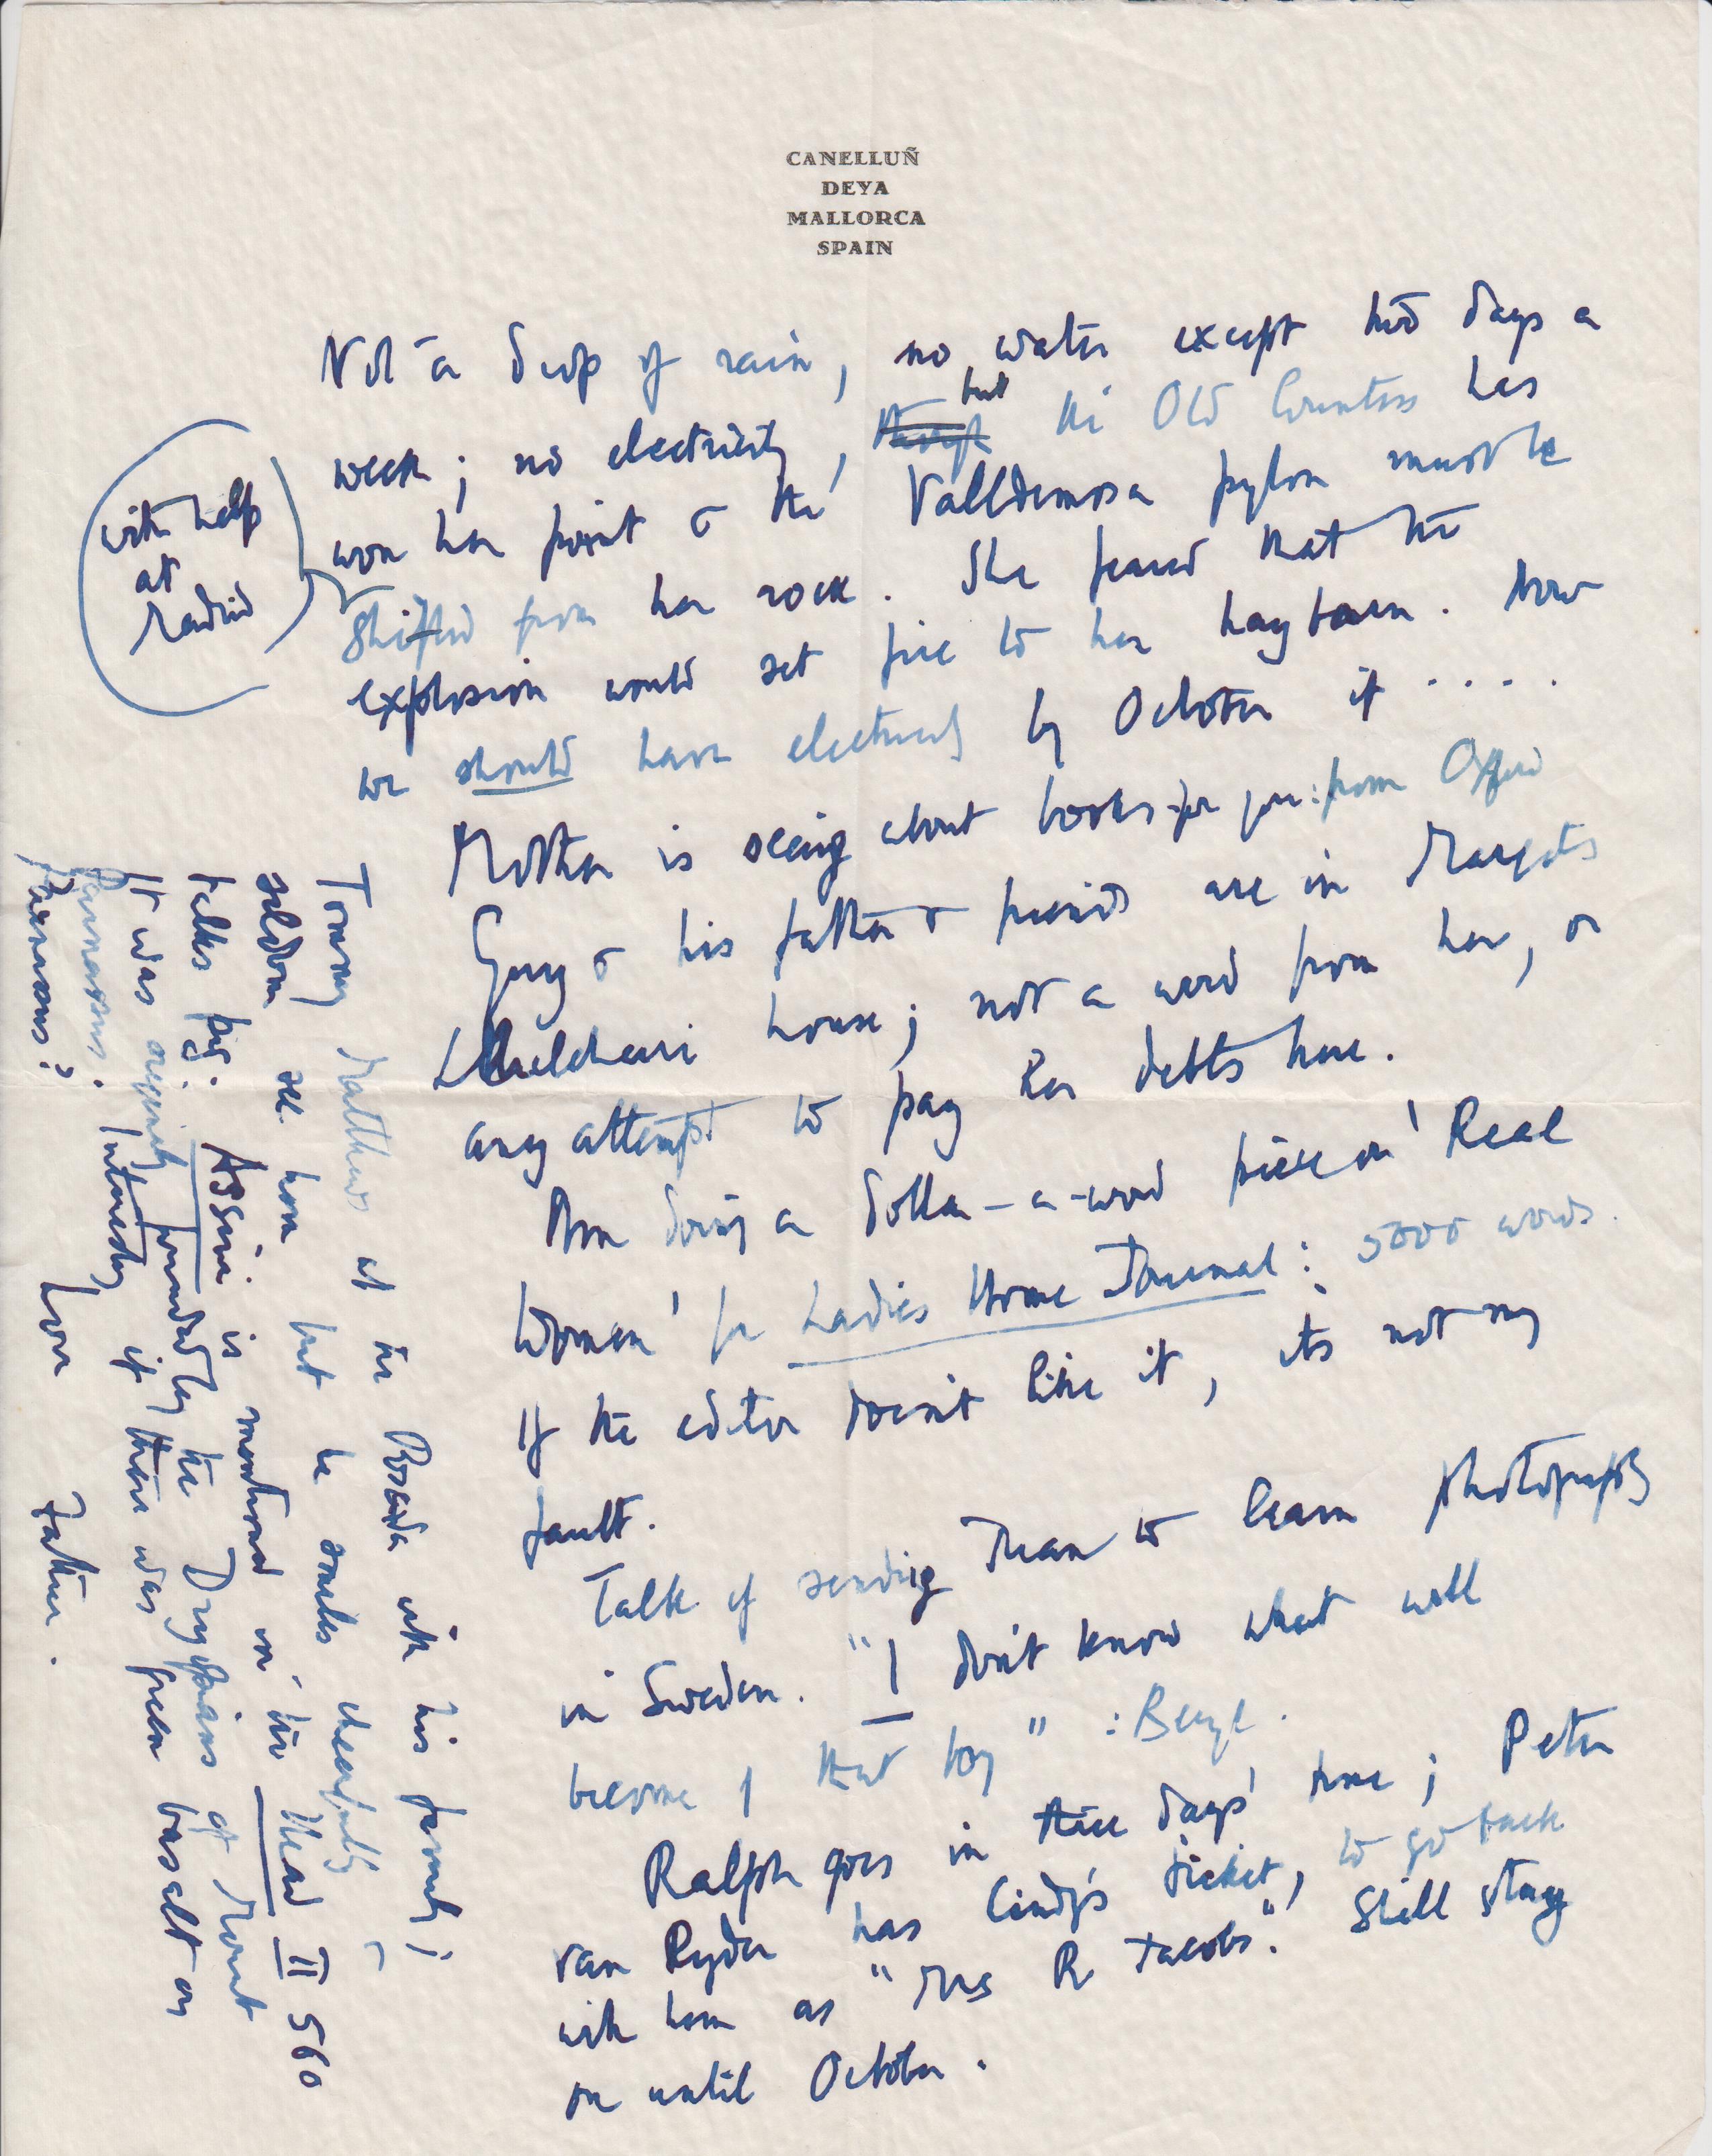 CANELLUÑ
DEYA
MALLORCA
SPAIN
Not a drop of rain, no water except two days a
week; no electricity, though but the Old Countess has
won her point & the Valldemosa pylon must be
(with help
at
Madrid)
shifted from her rock. She feared that the
explosion would set fire to her hay barn. Now
we should have electricity by October if ....
Mother is seeing about books for you: from Oxford
Guy & his father & friends are in Margots
house; not a word from her, or
any attempt to pay her debts here.
Am doing a dollar-a-word piece on 'Real
Women' for Ladies Home Journal: 5000 words.
If the editor doesn't like it, its not my
fault.
Talk of sending Juan to learn photography
in Sweden. "I don't know what will
become of that boy": Beryl.
Ralph goes in three days' time; Peter
van Ryder has Cindy's ticket, to go back
with him as "Mrs R Jacobs". Shall stay
on until October.
Tommy Matthews at the Posada with his family;
seldom see him but he smiles cheerfully &
talks pig. Assine is mentioned in the Iliad II 560
It was originally founded by the Dryopians of Mount
Parnassus. Interesting if there was green basalt on
Parnassus?
Love
Father.